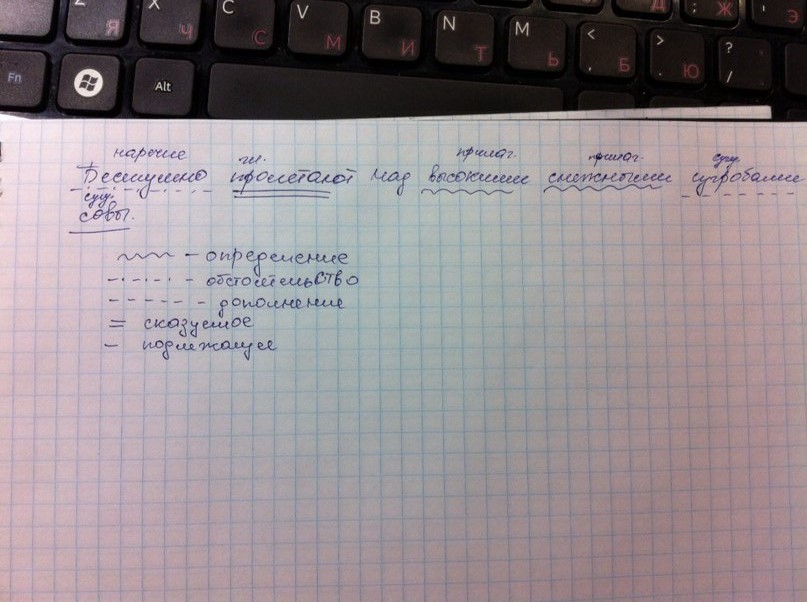 Z Я X Ч C С V М B И N Т M Ь < , Б > . Ю ? /
; Ж ' Э Д
Fn Alt
наречие гл. прилаг. прилаг. сущ.
Бесшумно пролетают над высокими снежными сугробами
сущ.
совы.
~~~ - определение
-·-·-·- - обстоятельство
- - - - - - дополнение
= сказуемое
- подлежащее